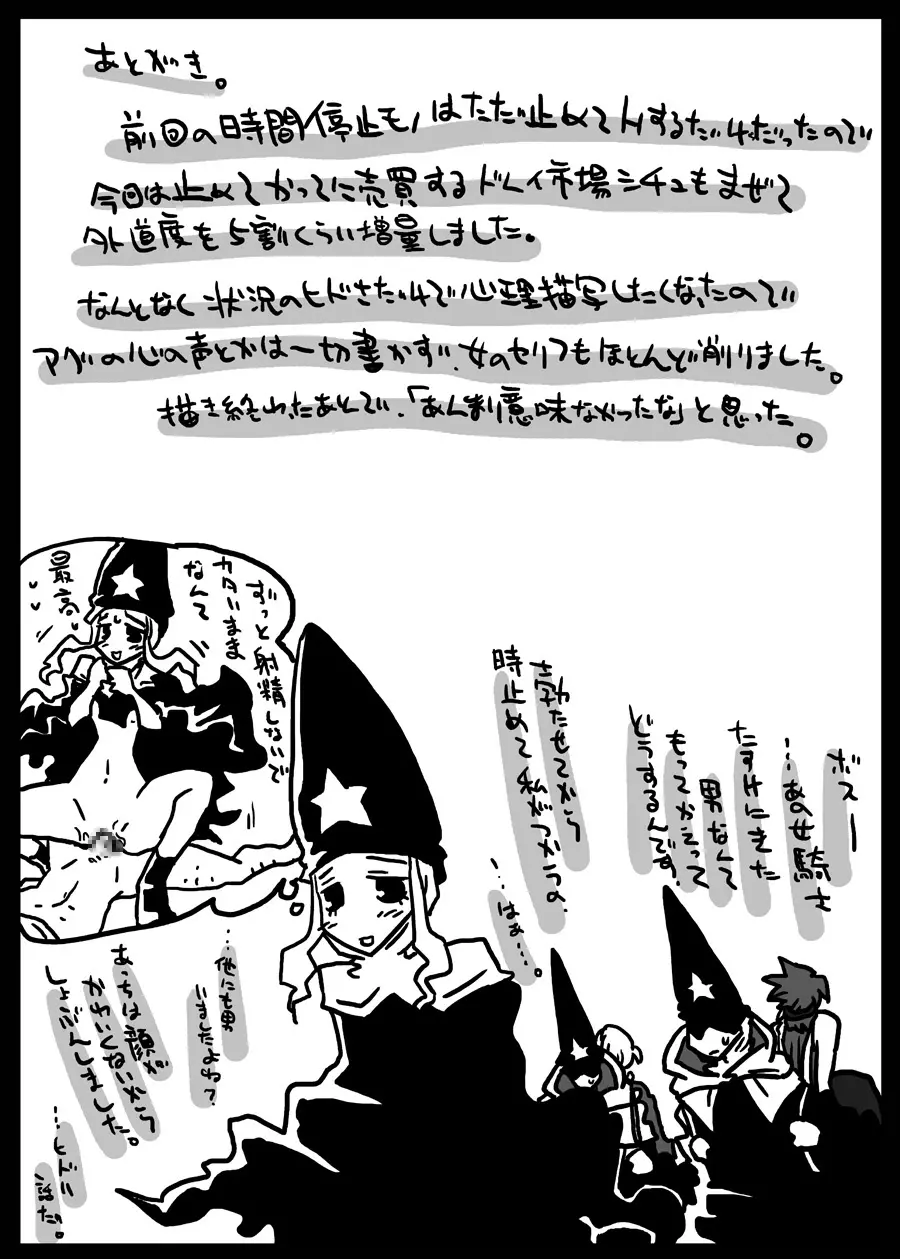 あとがき。
前回の時間停止モノはただ止めてHするだけだったので
今回は止めてかってに売買するドレイ市場シチュもまぜて
外道度を5割くらい増量しました。
なんとなく状況のヒドさだけで心理描写したくなったので
アヴの心の声とかは一切書かず、女のセリフもほとんど削りました。
描き終わったあとで、「あんま意味なかったな」と思った。
ボスー
…あの女騎士
たすけにきた
男なんて
もってかえって
どうするんです。
勃たせてから
時止めて私がつかうの。
…はぁ…。
ずっと射精しないで
カタいまま
なんて
最高
…他にも男
いましたよね？
あっちは顔が
かわいくないから
しょぶんしました。
…ヒドい
話だ。